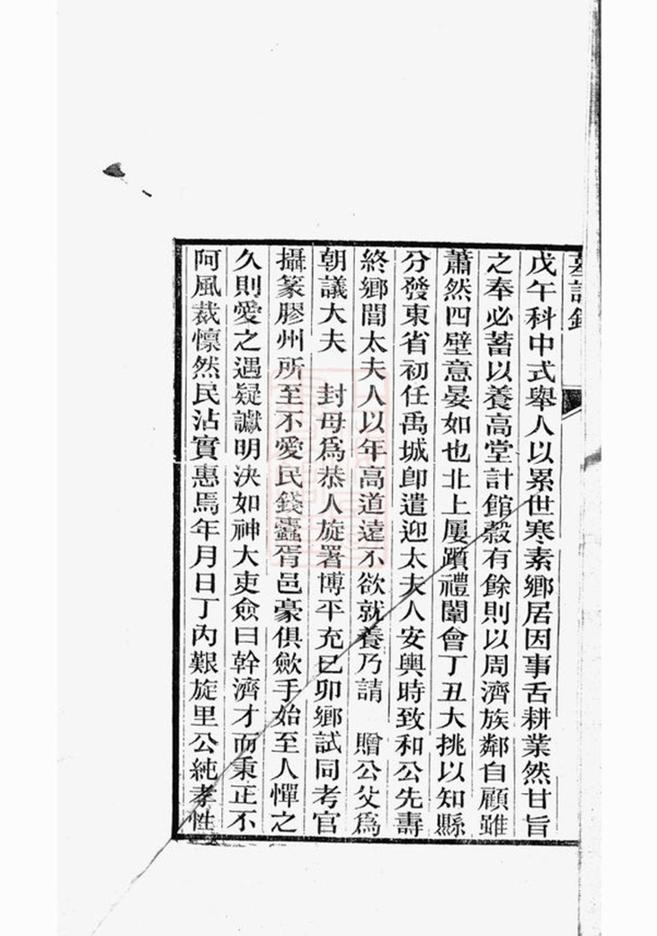 戊午科中式舉人以累世寒素鄉居因事舌耕業然甘旨
之奉必蓄以養高堂計館穀有餘則以周濟族鄰自顧雖
蕭然四壁意晏如也北上屢躓禮闈會丁丑大挑以知縣
分發東省初任禹城卽遣迎太夫人安輿時致和公先壽
終鄉閭太夫人以年高道遠不欲就養乃請　贈公父爲
朝議大夫　封母爲恭人旋署博平充己卯鄉試同考官
攝篆膠州所至不愛民錢蠹胥邑豪俱歛手始至人憚之
久則愛之遇疑讞明決如神大吏僉曰幹濟才而秉正不
阿風裁懍然民沾實惠焉年月日丁內艱旋里公純孝性